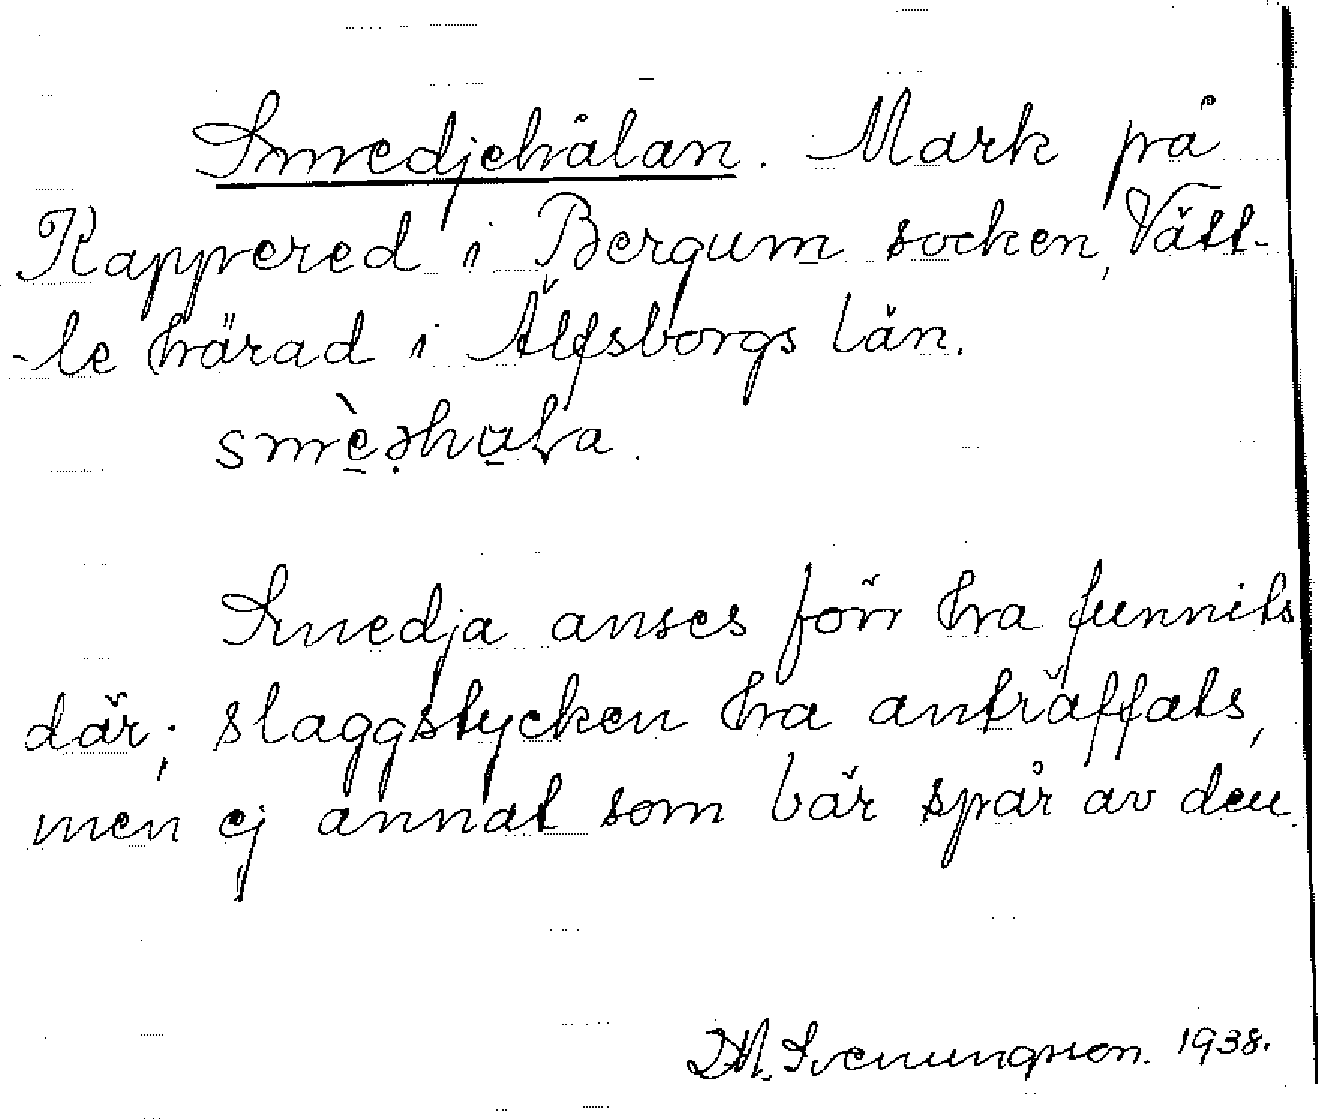 Smedjehålan. Mark på
Kappered i Bergum socken, Vätt-
-le härad i Älfsborgs län.

Smedja anses förr ha funnits
där; slaggstycken ha anträffats,
men ej annat som bär spår av den.
Svenungsson. 1938.